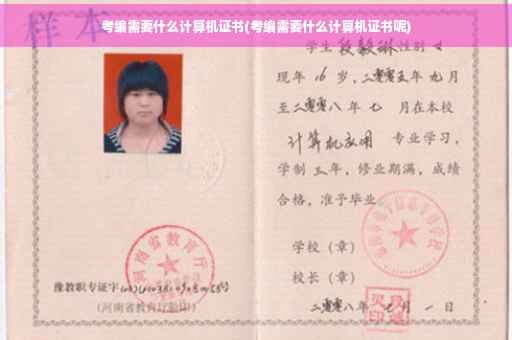 考编需要什么计算机证书(考编需要什么计算机证书呢)
样本
学生段毅琳性别女
现年16岁,二零零五年九月
至二零零八年七月在本校
计算机应用 专业学习,
学制三年,修业期满,成绩
合格,准予毕业
学校(章)
校长(章)
二零零八年七月一日
河南省教育厅
豫教职专证字
(河南省教育厅验印)